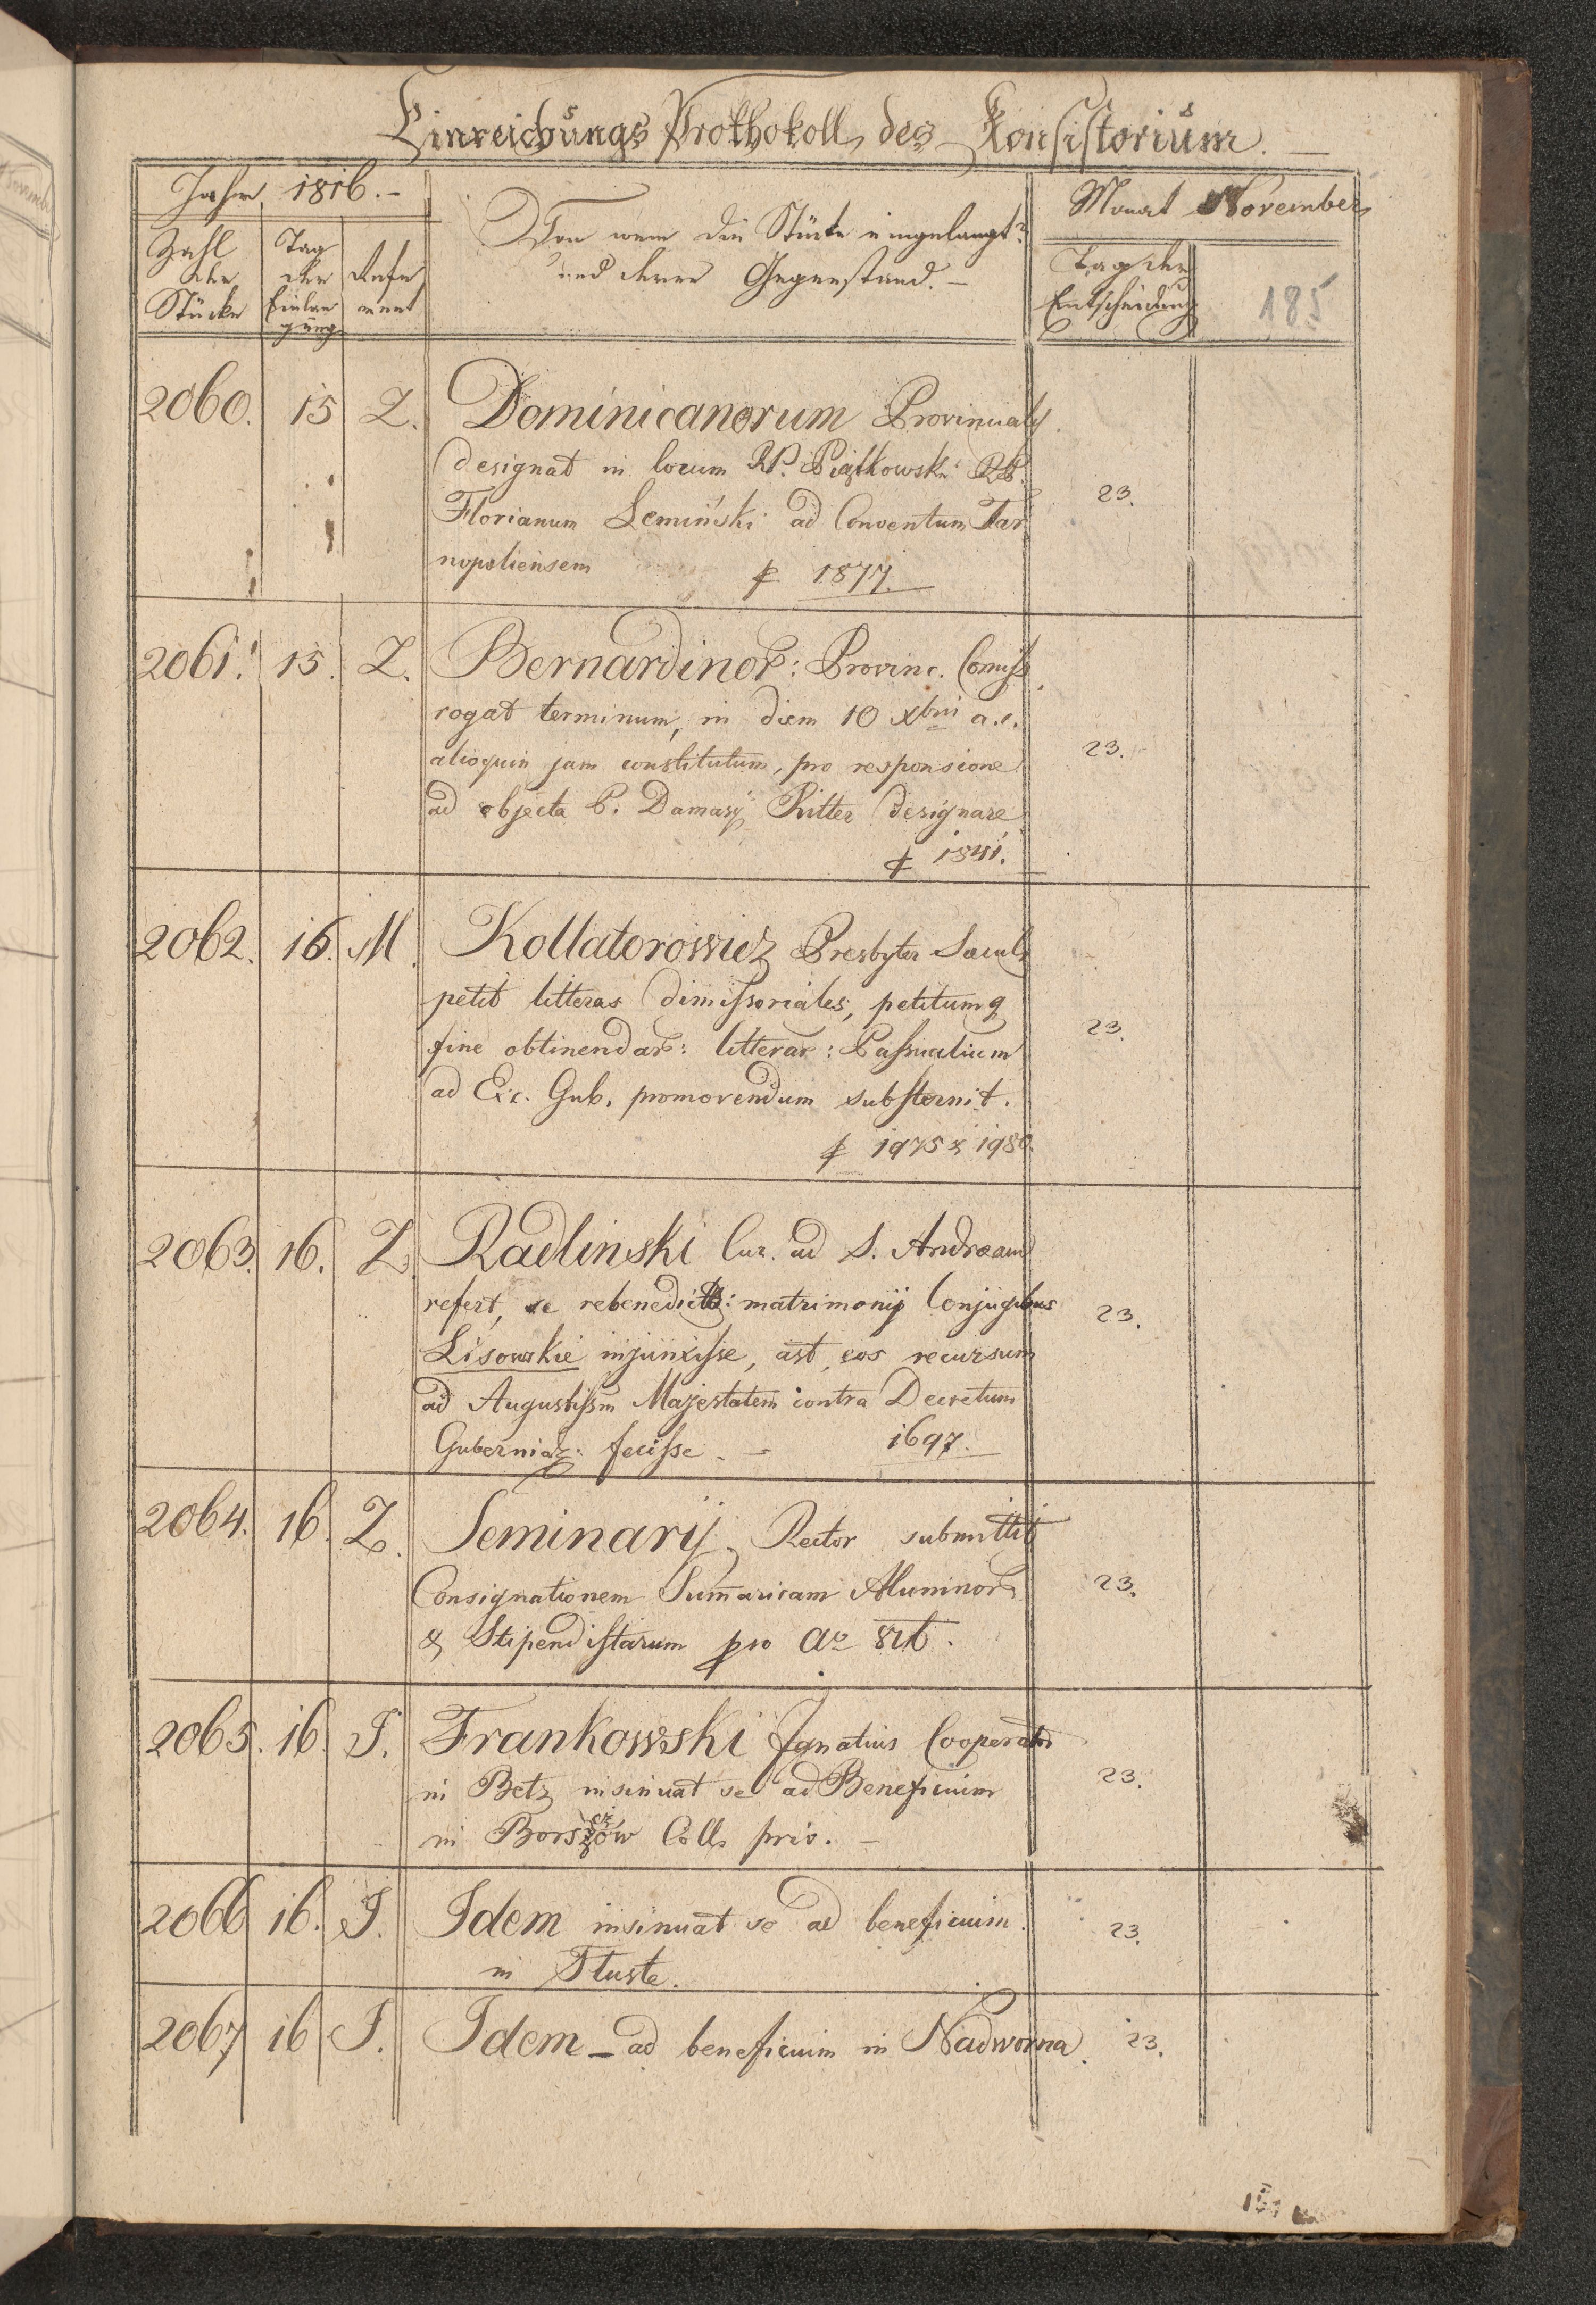 Einreichungs Prothokoll des Konsistorium. —
Jahr 1816. –
Monat November
Zahl der Stücke
Tag der Einlangung
Referent
Von wem die Stücke eingelangt?
und deren Gegenstand. –
Tag der Entscheidung
185
2060. 15 Z. Dominicanorum Provincialis
designat in locum RP. Piątkowski RP.
Florianum Lemiński ad Conventum Tar 23.
nopoliensem 1877.
2061. 15. Z. Bernardinor: Provinc. Comiss
rogat terminum, in diem 10 Xbris a.c.
alioquin jam constitutum, pro responsione 23.
ad objecta P. Damasij Ritter designare
1841.
2062. 16. M. Kollatorowicz Presbyter Saecul
petit litteras dimissoriales, petitumq
fine obtinendar: litterar: Passualium 23.
ad Exc. Gub. promovendum substernit.
1975 & 1980.
2063. 16. Z. Radlinski Cur. ad S. Andraeam
refert, se matrimonij Conjugibus 23.
Lisowskie injunxisse, ast eos recursum
ad Augustissm Majestatem contra Decretum
Gubernial: fecisse. – 1697.
2064. 16. Z. Seminarij Rector submittit
Consignationem Summaricam Alumnor 23.
& Stipendistarum pro
2065. 16. J. Frankowski Ignatius Cooperator
in Betz insinuat se ad Beneficium 23.
in Borszczów Coll. priv. –
2066 16. J. Idem insinuat se ad beneficium 23.
in Tłuste.
2067 16 J. Idem – ad beneficium in Nadworna. 23.